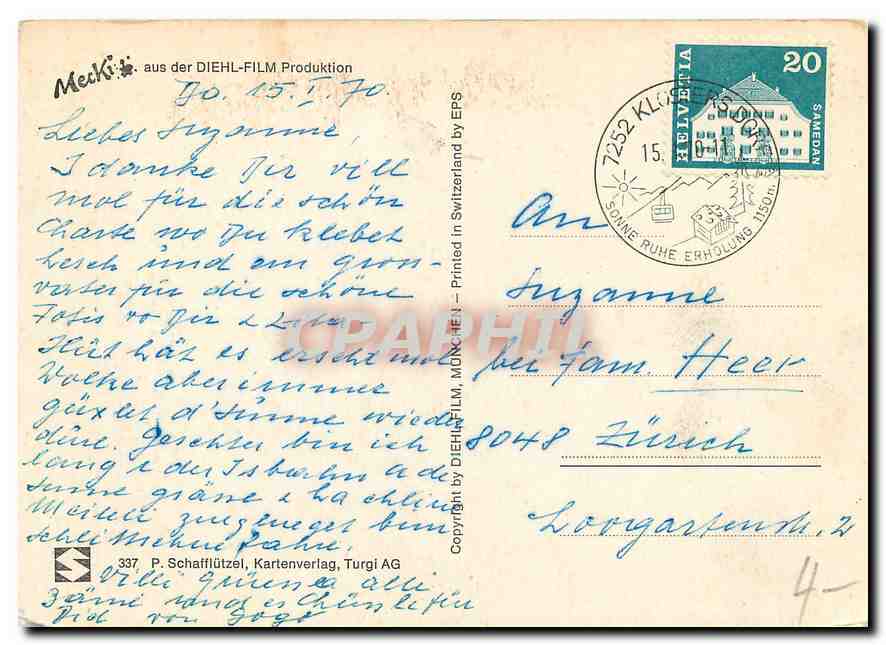 Mecki aus der DIEHL-FILM Produktion
Do. 15. I. 70.
Liebes Suzanne,
I danke Dir vill
mol für die schön
Charte wo Du klebet
hesch und em Gross-
vater für die schöne
Fotis vo Dir & Lila
Hüt hät es erscht mol
Wolke aber immer
güxlet d'Sunne wieder
düre. Geschter bin ich
lang i der Isbahn a de
Sunne gsässe & ha chline
Meiteli zuegeneget bim
Schlittschue fahre.
Villi Grüess a alli
zäme und es Chüssli für
Did von Gogo
337 P. Schafflützel, Kartenverlag, Turgi AG
Copyright by DIEHL-FILM, MÜNCHEN – Printed in Switzerland by EPS
HELVETIA
20
SAMEDAN
7252 KLOSTERS DORF
15.
SONNE RUHE ERHOLUNG 1150m.
An
Suzanne
bei Fam. Heer
8048 Zürich
Loogartenstr. 2
4-
CPAPHIL